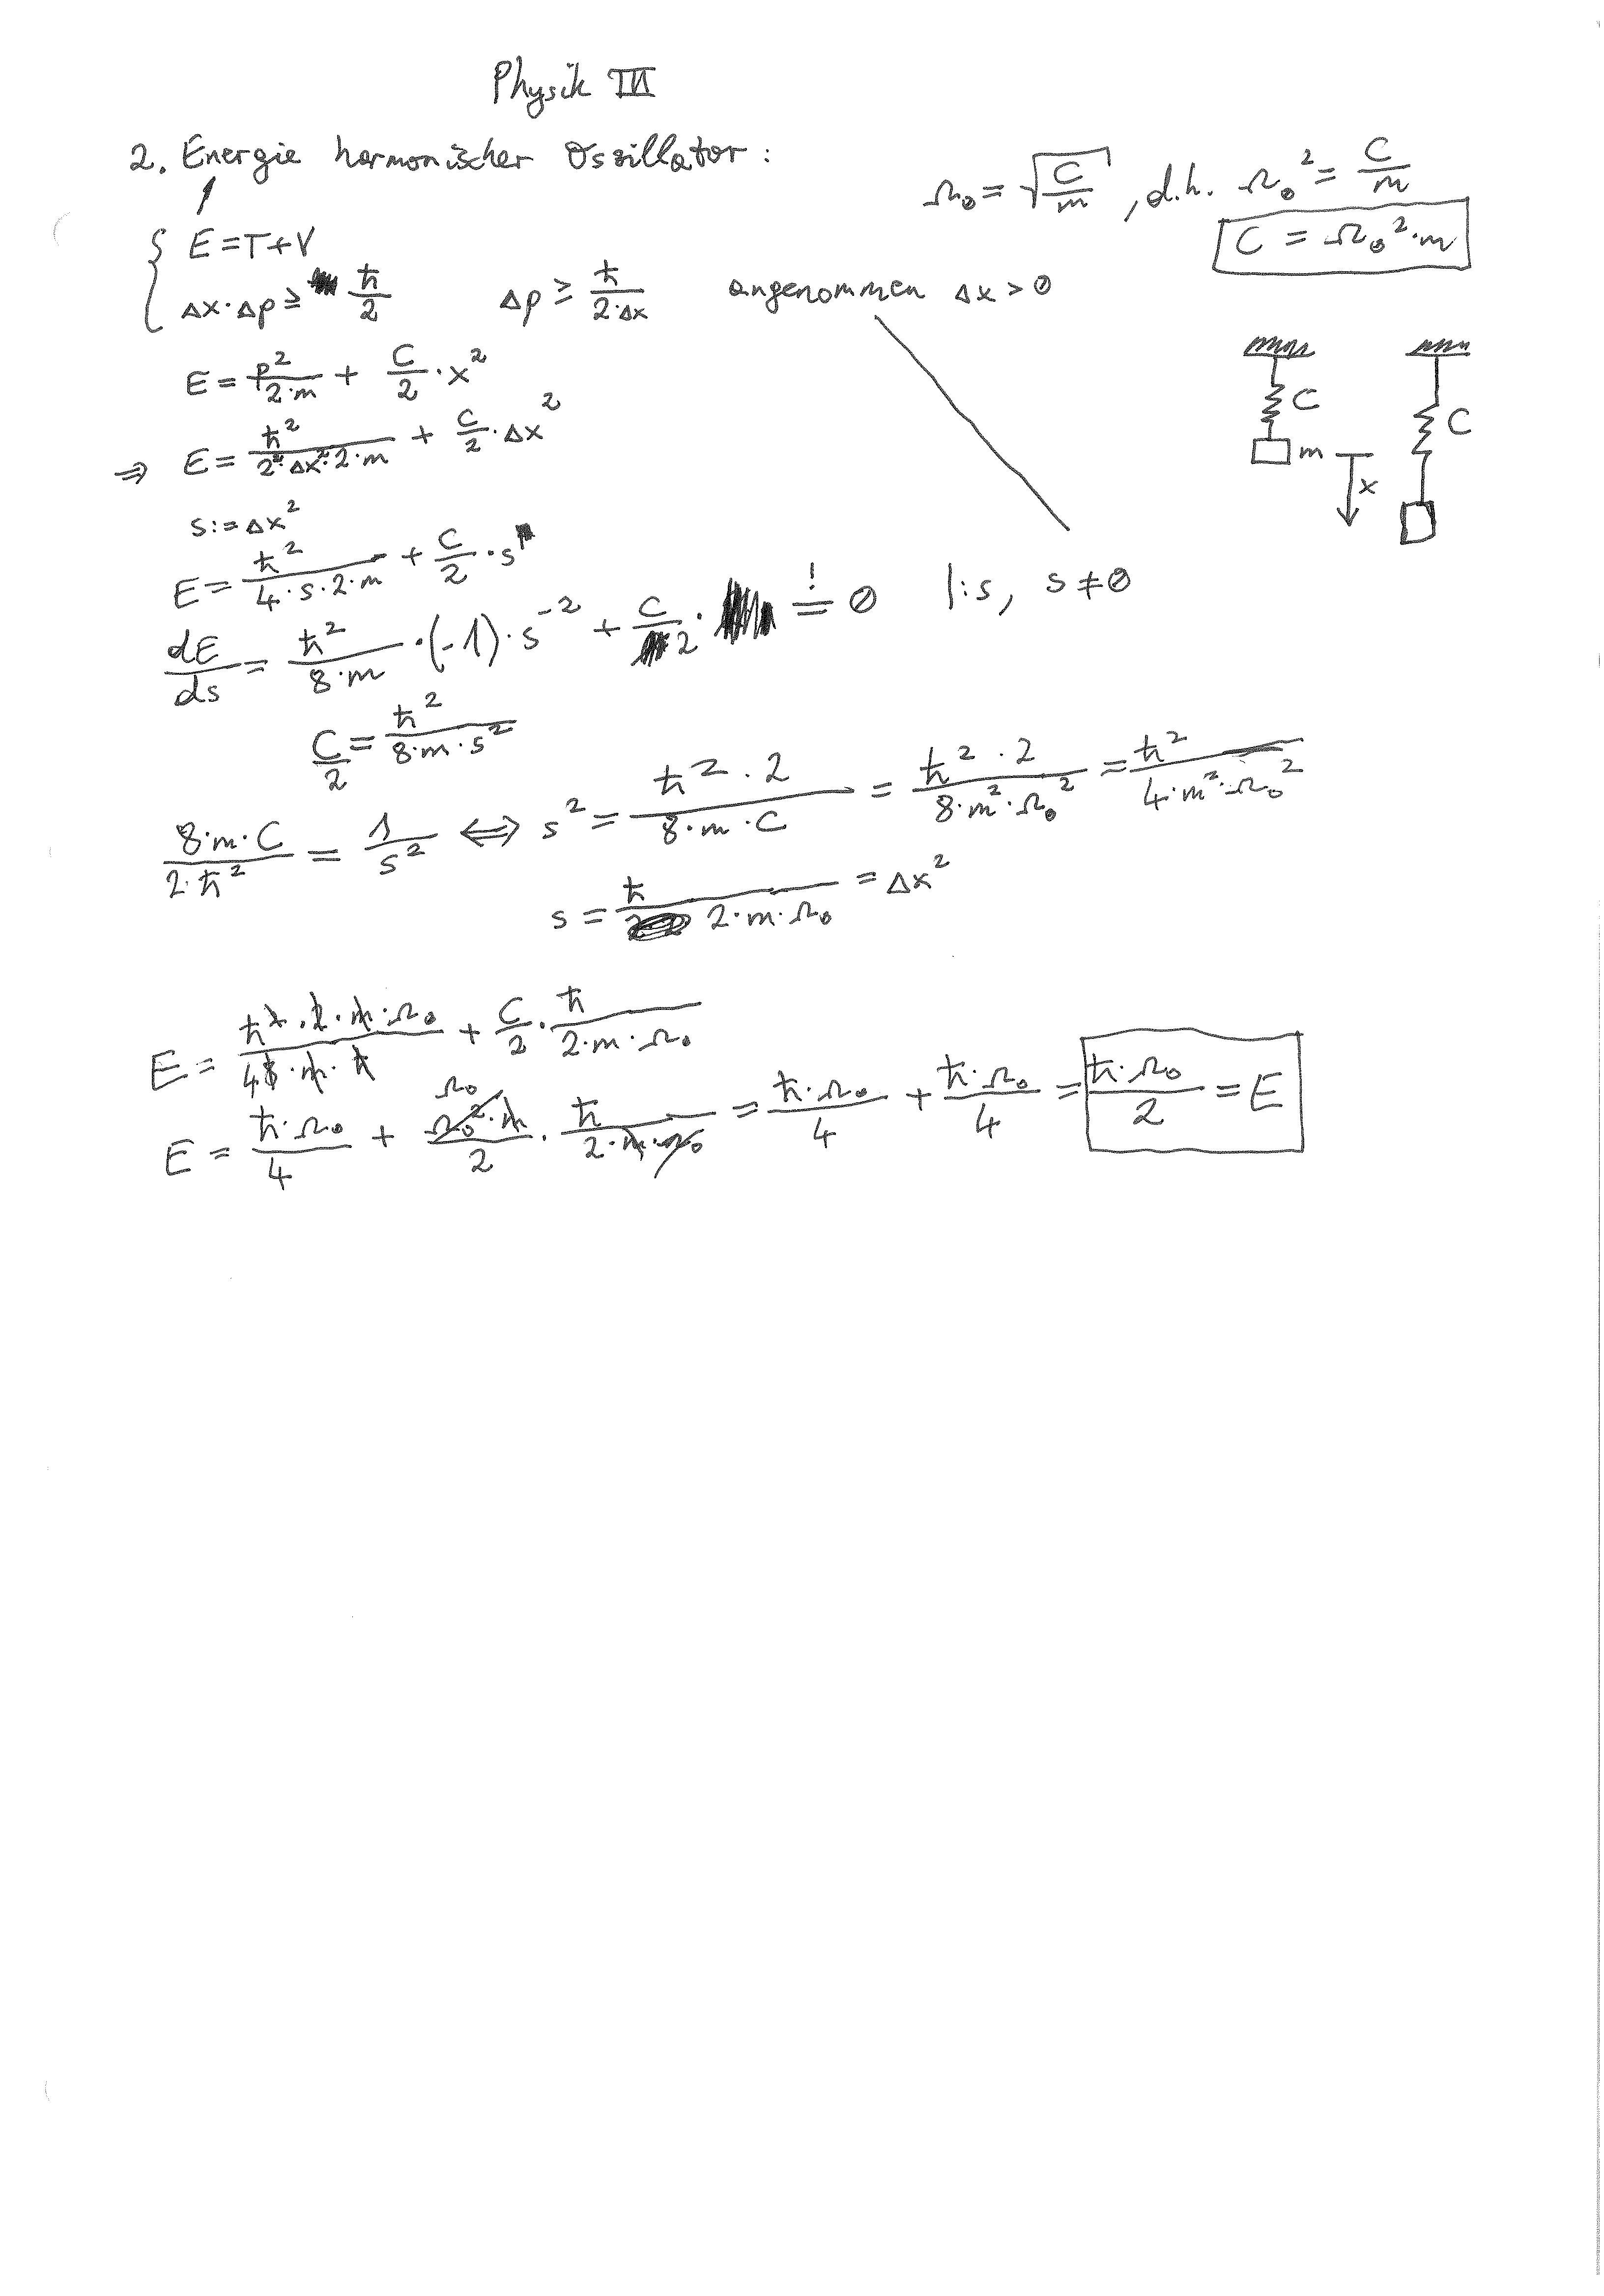 Physik III
2. Energie harmonischer Oszillator:
Ω₀ = √(C/m), d.h. Ω₀² = C/m
C = Ω₀²·m
E = T+V
Δx·Δp ≥ ħ/2    Δp ≥ ħ/(2·Δx)    angenommen Δx > 0
E = p²/(2·m) + C/2·x²
⇒ E = ħ²/(2²·Δx²·2·m) + C/2·Δx²
C C
m x
s := Δx²
E = ħ²/(4·s·2·m) + C/2·s
dE/ds = ħ²/(8·m)·(-1)·s⁻² + C/2· =! 0    |:s, s≠0
C/2 = ħ²/(8·m·s²)
8·m·C/(2·ħ²) = 1/s² ⇔ s² = ħ²·2/(8·m·C) = ħ²·2/(8·m²·Ω₀²) = ħ²/(4·m²·Ω₀²)
s = ħ/(2·m·Ω₀) = Δx²
E = ħ²·2·m·Ω₀/(4 8·m·ħ) + C/2·ħ/(2·m·Ω₀)
E = ħ·Ω₀/4 + Ω₀ Ω₀²·m/2·ħ/(2·m·Ω₀) = ħ·Ω₀/4 + ħ·Ω₀/4 = ħ·Ω₀/2 = E